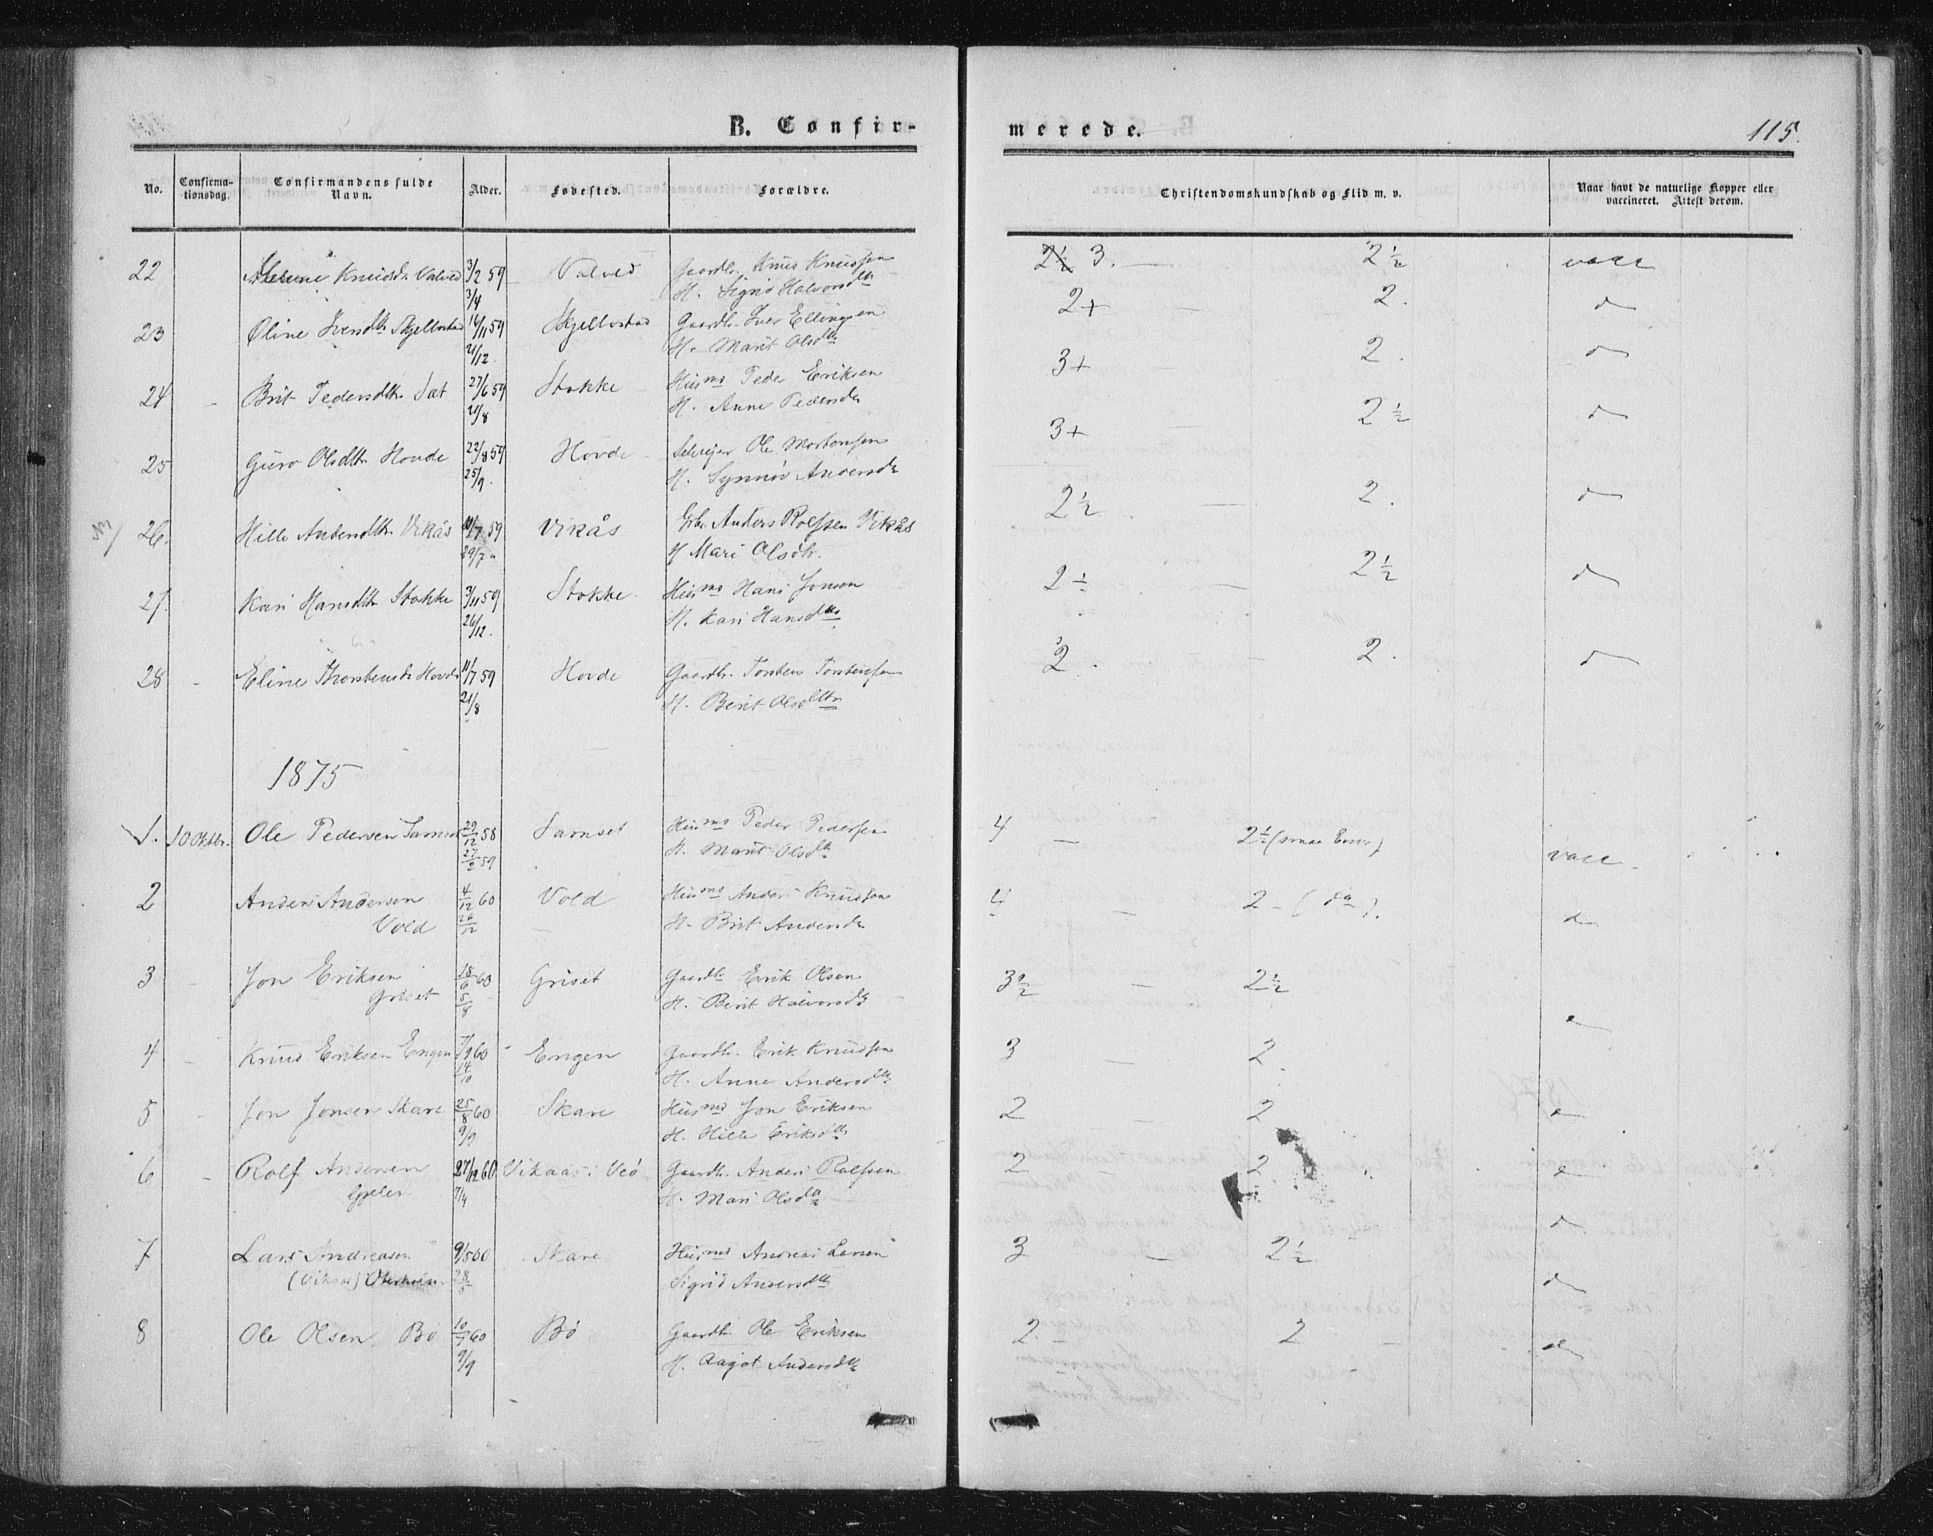 B. Confir-
merede.
115.
No.
Confirma-
tionsdag.
Confirmandens fulde
Navn.
Alder.
Fødested.
Forældre.
Christendomskundskab og Flid m. v.
Naar havt de naturlige Kopper eller
vaccineret. Attest derom.
22 Knudsdtr Valved 3/2 59 Valved Gaardbr. Knud Knudsen 2½ 3. — 2½ vacc
3/4 H. Sigrid Halvorsdtr
23 Oline Iversdtr Skjelbostad 16/11 59 Skjelbostad Gaardbr. Iver Ellingsen 2+ 2. d
21/12 H. Marit Olsdtr
24 Brit Pedersdtr Sæt 27/6 59 Stokke Husmd Peder Eriksen 3+ 2. d
21/8 H. Anne Pedersdr
25 Guro Olsdtr Hovde 22/8 59 Hovde Selveier Ole Mortensen 3+ 2½ d
25/9. H. Synnøv Andersdr
26. Hille Andersdtr Vikås 11/7 59 Vikås Gbr. Anders Rolfsen Vikås 2½ — 2. d
29/7 H Mari Olsdtr.
27. Kari Hansdtr Stokke 3/11 59 Stokke. Husmd Hans Jonsen 2÷ — 2½ d
26/12. H. Kari Hansdtr
28 - Eline Thorstensdr Hovde 11/7 59 Hovde Gaardbr. Torsten Torstensen 2. 2. d
21/8 H. Berit Olsdtr
1875
1. 10 Oktbr. Ole Pedersen Samset 29/12 58 Samset Husmd Peder Pedersen 4 — 2½ vacc
27/2 59 H. Marit Olsdtr
2 Anders Andersen 4/12 60 Vold Husmd Anders Knudsen 4 — 2 - (do). d
Vold 26/12 H. Brit Andersdr
3 - Jon Eriksen 18/6 60 Griset Gaardbr Erik Olsen 3½ — 2½
Griset 5/8 H. Berit Halvorsdtr
4 - Knud Eriksen Engen 7/9 60 Engen Gaardbr. Erik Knudsen 3 — 2.
14/10 H. Anne Andersdtr
5 - Jon Jonsen Skare 25/8 60 Skare Husmd Jon Eriksen 2 2
9/9 H. Hille Eriksdtr
6 - Rolf Andersen 27/12 60 Vikaas i Veø Gaardbr. Anders Rolfsen 2 — 2
7/4 H. Mari Olsdtr d
7 Lars Andreasen 9/5 60 Skare Husmd Andreas Larsen 3 — 2½
(Vikaas) 28/5 Sigrid Andersdtr d
8 Ole Olsen Bø 10/7 60 Bø Gaardbr Ole Eriksen 2. — 2 — d
9/9 H. Aagot Andersdtr